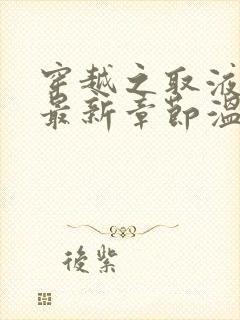 穿越之取液
最新章节温
後紫